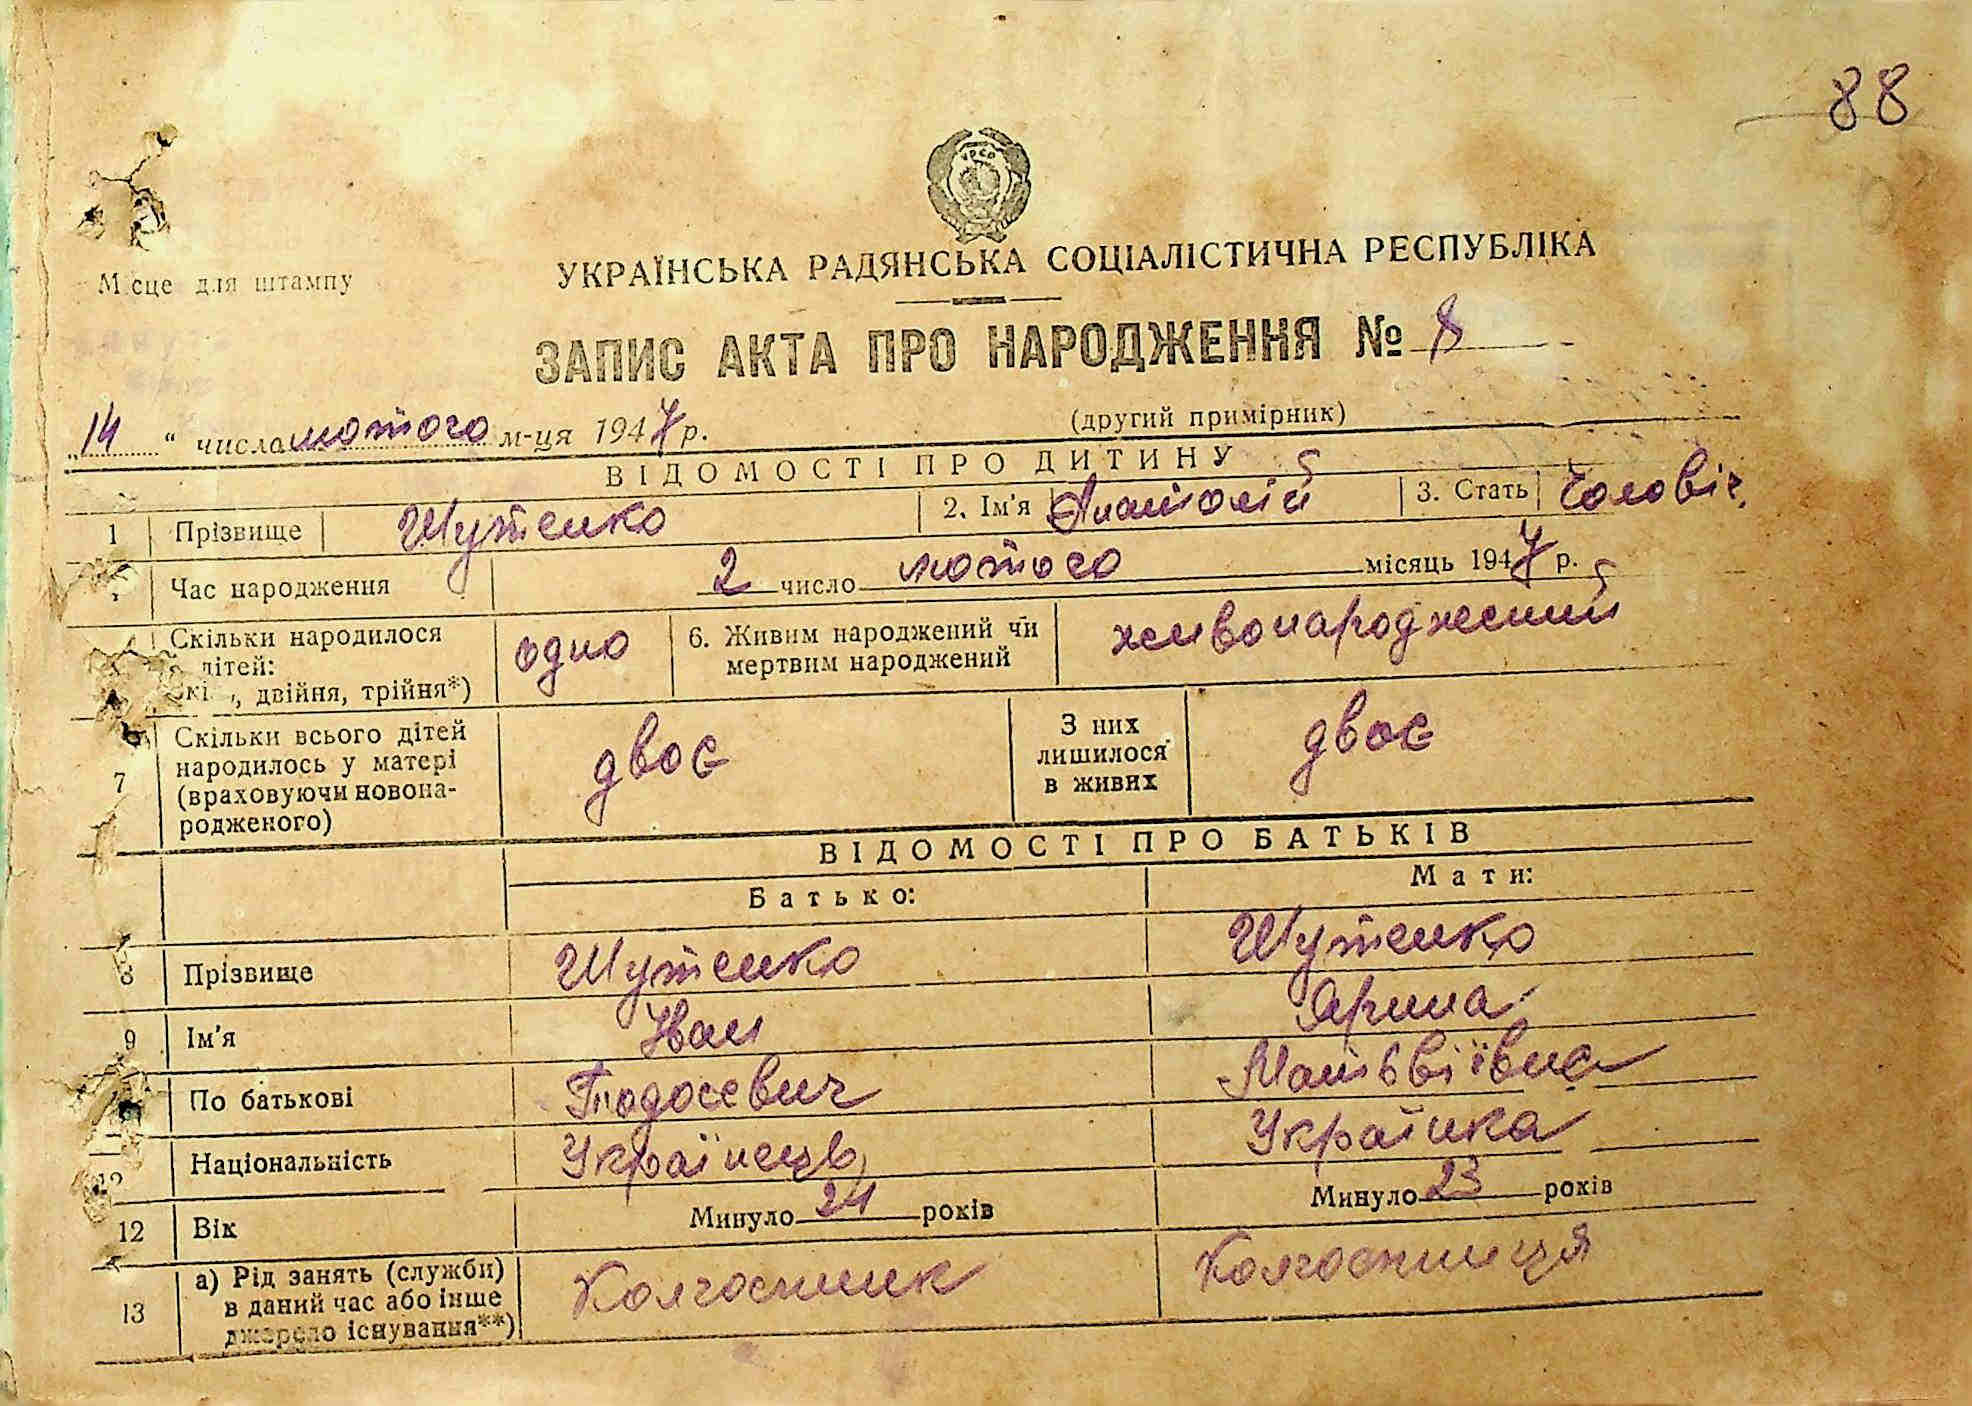 88
УРСР
Місце для штампу
УКРАЇНСЬКА РАДЯНСЬКА СОЦІАЛІСТИЧНА РЕСПУБЛІКА
ЗАПИС АКТА ПРО НАРОДЖЕННЯ № 8
„14" числа лютого м-ця 1947 р. (другий примірник)
ВІДОМОСТІ ПРО ДИТИНУ
1 Прізвище Шутенко 2. Ім'я Анатолій 3. Стать Чоловіч.
Час народження 2 число лютого місяць 1947 р.
Скільки народилося дітей: двійня, трійня*) одно 6. Живим народжений чи мертвим народжений живонароджений
7 Скільки всього дітей народилось у матері (враховуючи новонародженого) двоє З них лишилося в живих двоє
ВІДОМОСТІ ПРО БАТЬКІВ
Батько: Мати:
8 Прізвище Шутенко Шутенко
9 Ім'я Іван Ярина
По батькові Тодосевич Матьвіївна
Національність Українець Українка
12 Вік Минуло 24 років Минуло 23 років
13 а) Рід занять (служби) в даний час або інше джерело існування**) Колгоспник Колгоспниця